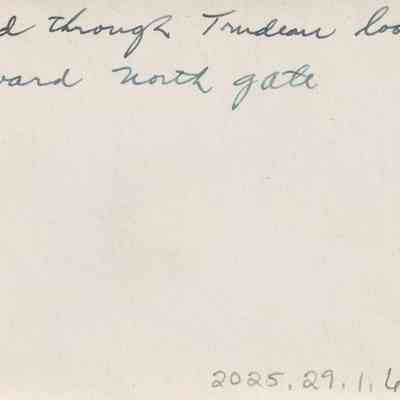 d through Trudeau loo
ward North gate
2025.29.1.6